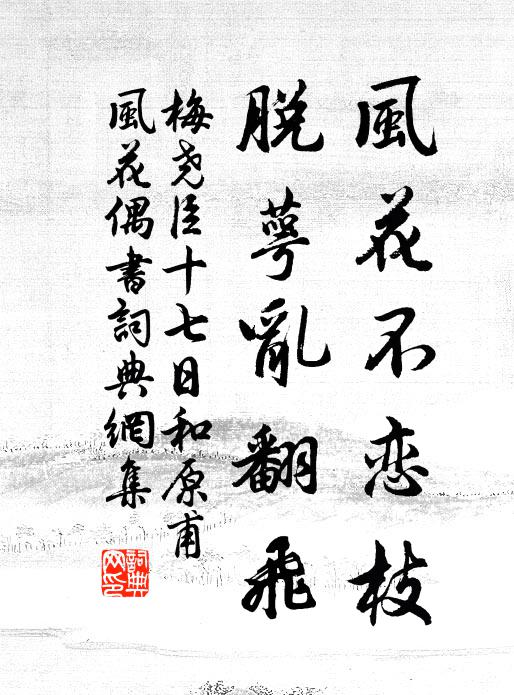 風花不恋枝
脫萼亂翻飛
梅堯臣十七日和原甫
風花偶書詞典網集
詞典網印